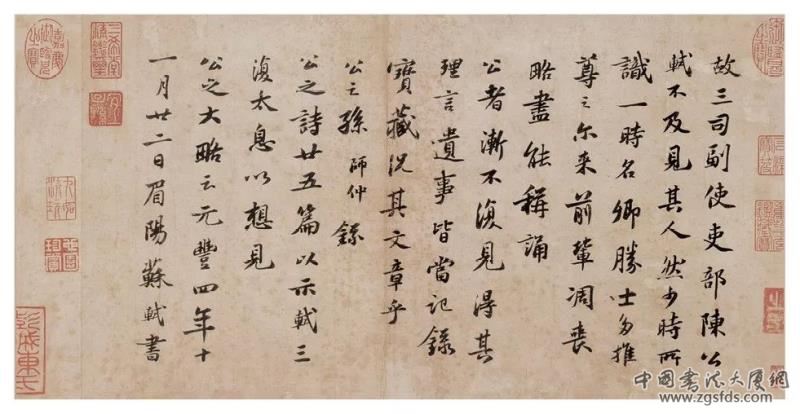 故三司副使吏部陳公
軾不及見其人然少時所
識一時名卿勝士多推
尊之尓来前輩凋喪
略盡能稱誦
公者漸不復見得其
理言遺事皆當記錄
寶藏况其文章乎
公之孫師仲錄
公之詩廿五篇以示軾三
復太息以想見
公之大略云元豐四年十
一月廿二日眉陽蘇軾書
嘉慶御覽之寶
中國書法大廈網
www.zgsfds.com